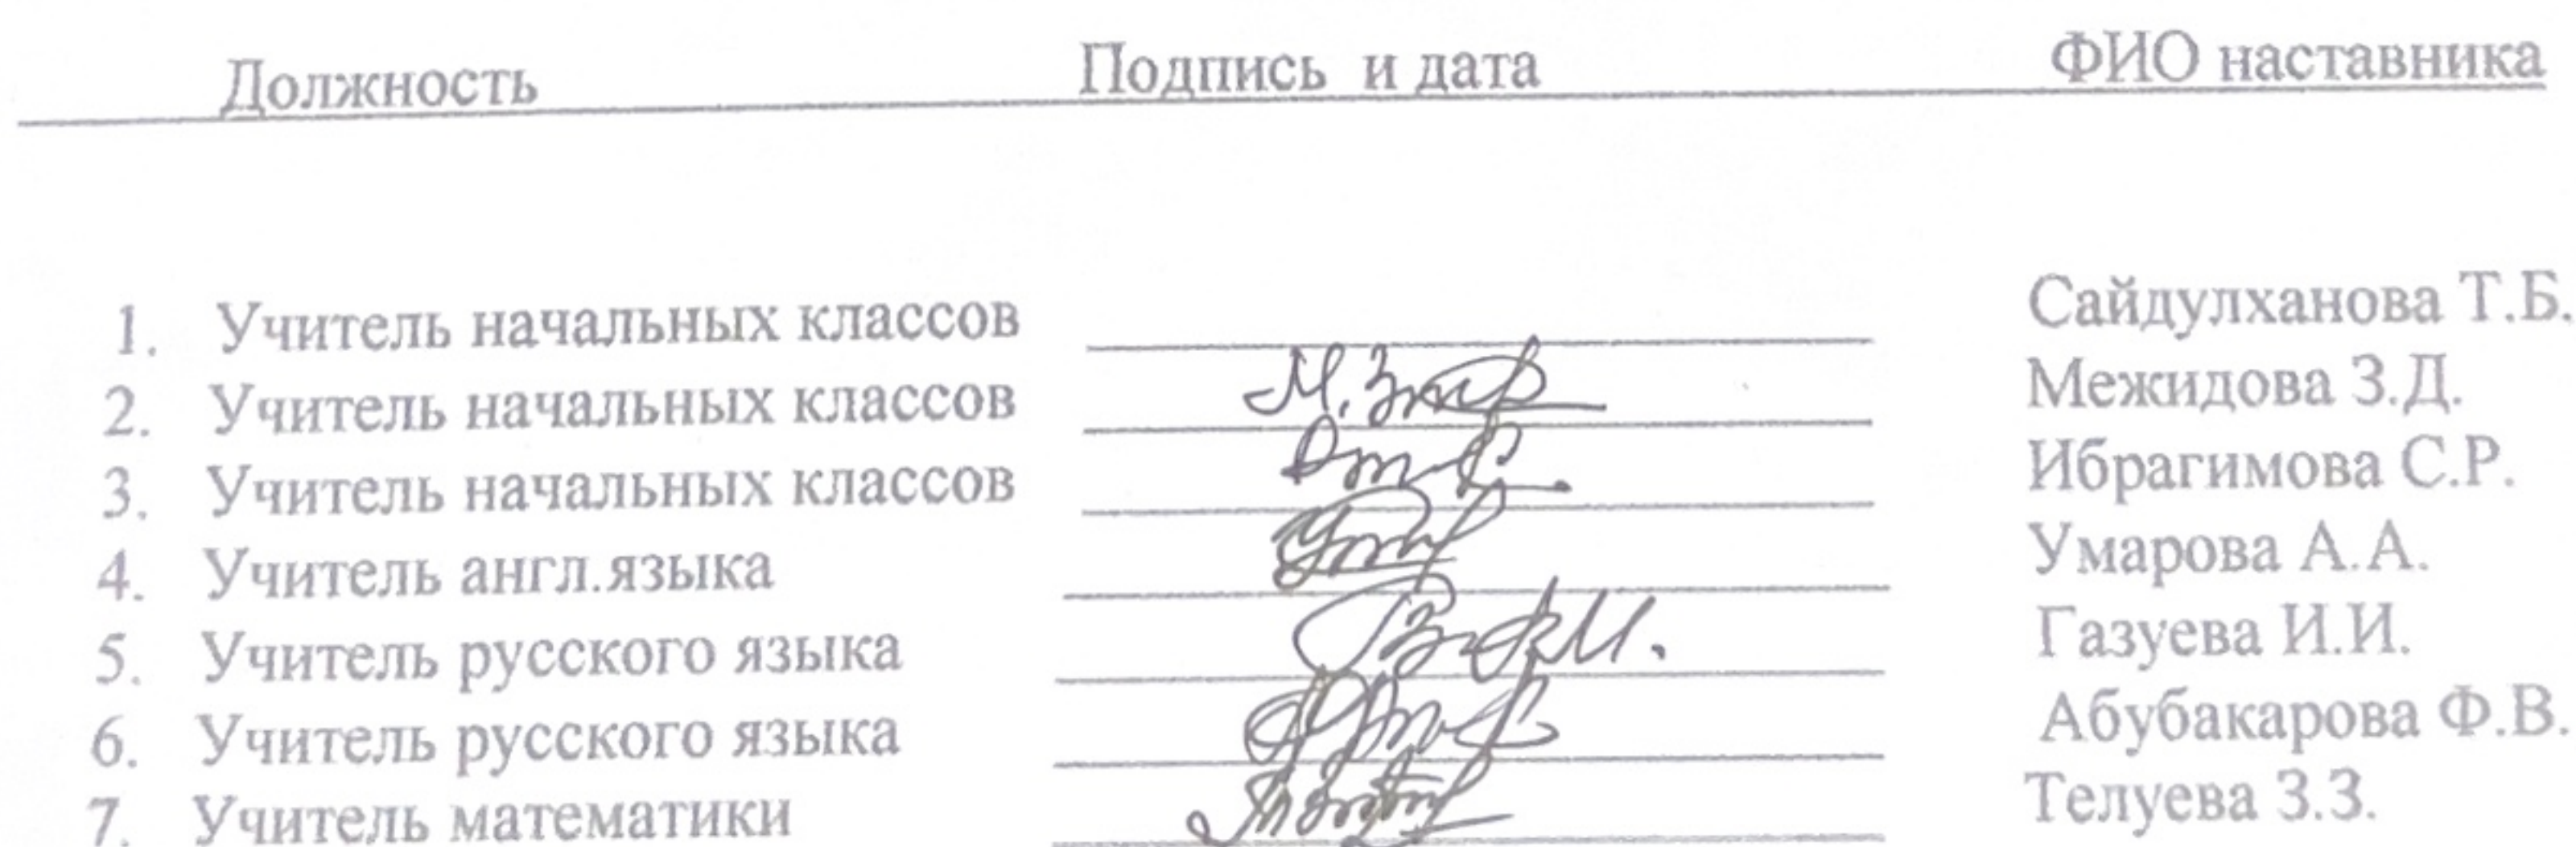 Должность Подпись и дата ФИО наставника
1. Учитель начальных классов Сайдулханова Т.Б.
2. Учитель начальных классов Межидова З.Д.
3. Учитель начальных классов Ибрагимова С.Р.
4. Учитель англ.языка Умарова А.А.
5. Учитель русского языка Газуева И.И.
6. Учитель русского языка Абубакарова Ф.В.
7. Учитель математики Телуева З.З.